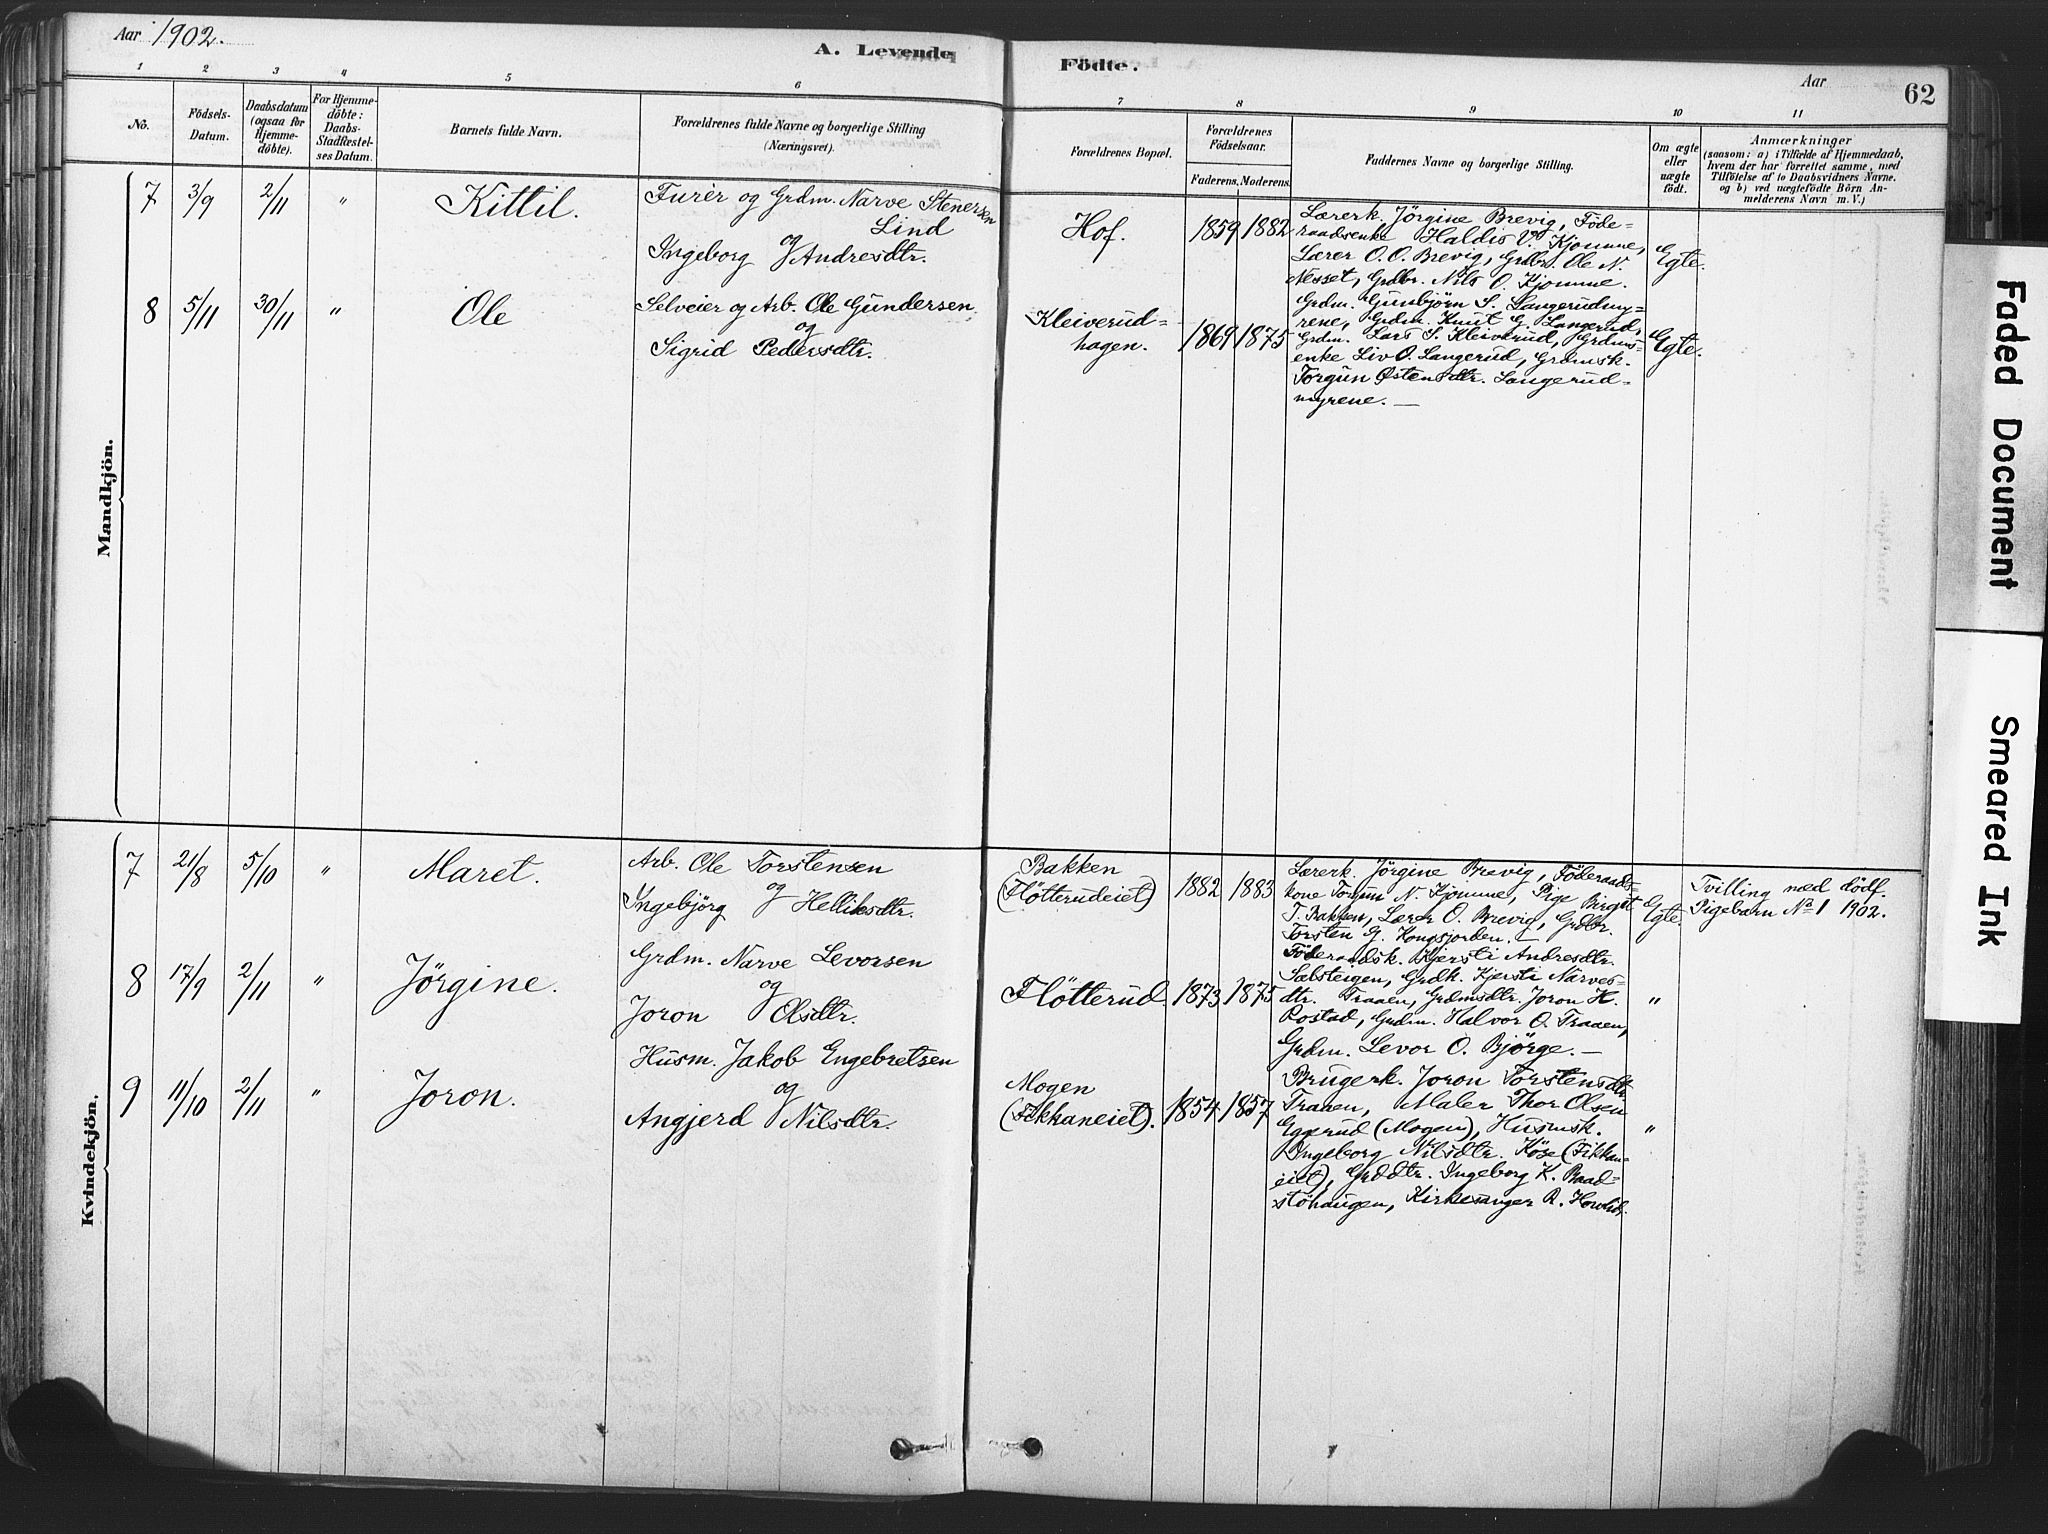 Aar 1902.
A. Levende Födte.
Aar
62
1 2 3 4 5 6 7 8 9 10 11
No.
Födsels-Datum.
Daabsdatum (ogsaa for Hjemme-döbte).
For Hjemme-döbte: Daabs-Stadfæstel-ses Datum.
Barnets fulde Navn.
Forældrenes fulde Navne og borgerlige Stilling
(Næringsvei).
Forældrenes Bopæl.
Forældrenes Födselsaar.
Faderens. Moderens.
Faddernes Navne og borgerlige Stilling.
Om ægte eller uægte födt.
Anmærkninger
(saasom: a) i Tilfælde af Hjemmedaab,
hvem der har forrettet samme, med
Tilföielse af to Daabsvidners Navne.
og b) ved uægtefödte Börn An-
melderens Navn m. V.)
Mandkjön.
7 3/9 2/11 " Kittil.
Furér og Grdm. Narve Stenersen
Lind
og
Ingeborg Andresdtr.
Hof. 1859 1882
Lærerk. Jörgine Brevig, Föde-
raadsenke Haldis V. Kjomme,
Lærer O. O. Brevig, Grdbr. Ole N.
Nesset, Grdbr. Nils O. Kjomme.
Egte.
8 5/11 30/11 " Ole
Selveier og Arb. Ole Gundersen
og
Sigrid Pedersdtr.
Kleiverud-
hagen. 1869 1875
Grdm. Gunbjörn S. Langerudmy-
rene, Grdm. Knut G. Langerud,
Grdm. Lars S. Kleiverud, Grdms-
enke Liv O. Langerud, Grdmsk.
Torgun Østensdtr. Langerud-
myrene. —
Egte.
Kvindekjön.
7 21/8 5/10 " Maret.
Arb. Ole Torstensen
og
Ingebjörg Helliksdtr.
Bakken
(Flötterudeiet) 1882 1883
Lærerk. Jörgine Brevig, Föderaads-
kone Torgun N. Kjomme, Pige Birgit
T. Bakken, Lærer O. Brevig, Grdbr.
Torsten G. Kongsjorden. —
Egte.
Tvilling med dödf.
Pigebarn No 1 1902.
8 17/9 2/11 " Jörgine.
Grdm. Narve Levorsen
og
Joron Olsdtr.
Flötterud 1873 1875
Föderaadsk. Kjersti Andresdtr.
Sabsteigen, Grdk. Kjersti Narves-
dtr. Traaen, Grdmsdtr. Joron H.
Rostad, Grdm. Halvor O. Traaen,
Grdm. Levor O. Björge. —
"
9 11/10 2/11 " Joron.
Husm. Jakob Engebretsen
og
Angjerd Nilsdtr.
Mogen
(Fikkaneiet). 1854 1857
Brugerk. Joron Torstensdtr.
Traaen, Maler Thor Olsen
Eggerud (Mogen), Husmsk.
Ingeborg Nilsdtr. Köse (Fikkan-
eiet), Grddtr. Ingeborg K. Baad-
stöhaugen, Kirkesanger R.
"
Faded Document
Smeared Ink